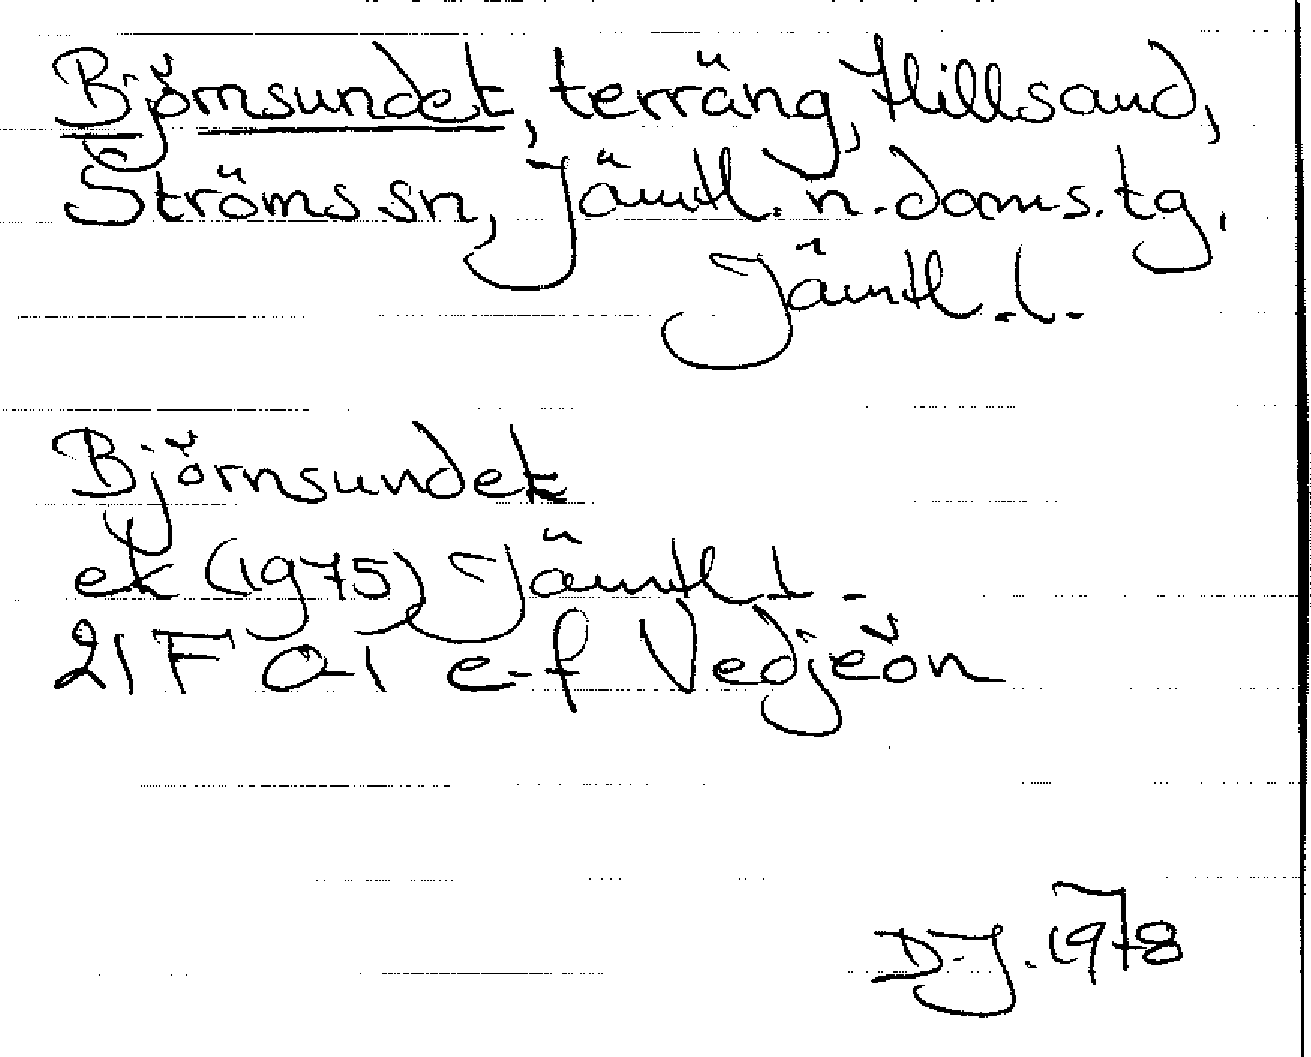 Björnsundet, terräng, Hillsand,
Ströms sn, Jämtl. n. doms. tg,
Jämtl. l.
Björnsundet
ek (1975) Jämtl l -
21 F 0-1 e-f Vedjeön
D-J. 1978